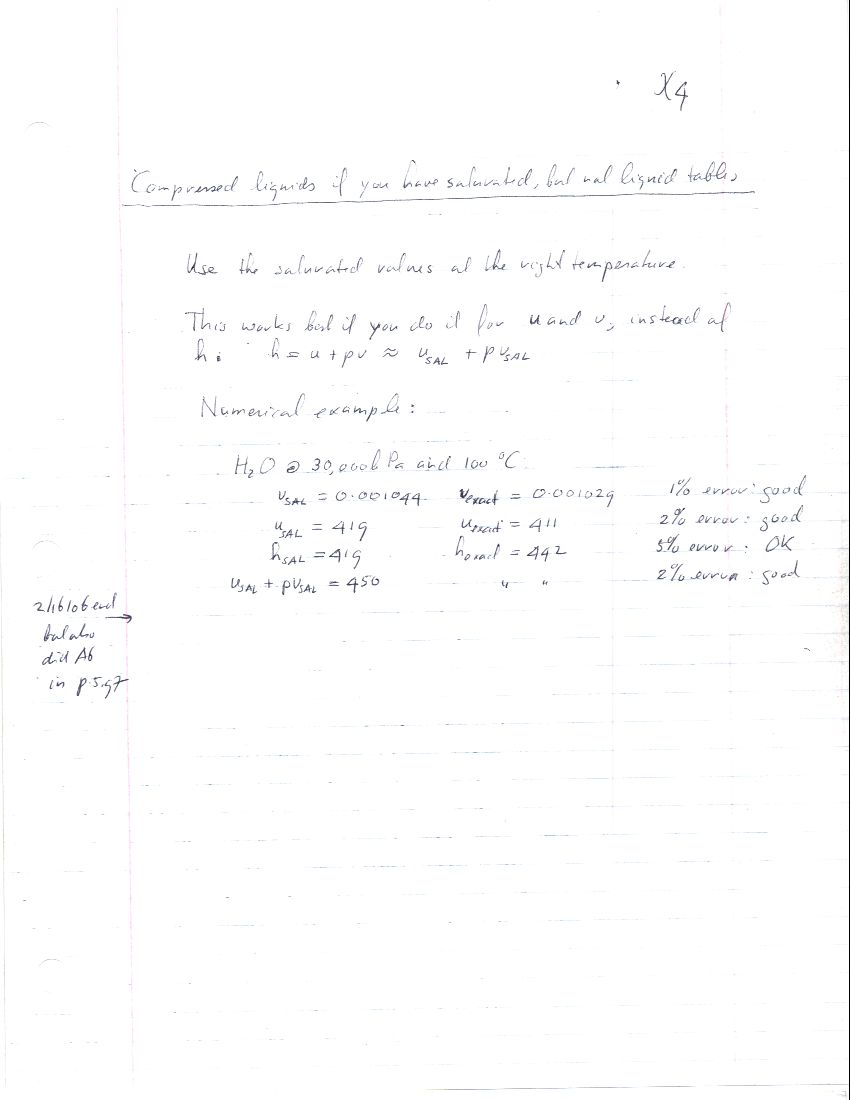 X4
Compressed liquids if you have saturated, but not liquid tables
Use the saturated values at the right temperature.
This works best if you do it for u and v, instead of
h: h = u + pv ≈ uSAT + p vSAT
Numerical example:
H2O @ 30,000 k Pa and 100 °C
vSAT = 0.001044 vexact = 0.001029 1% error: good
uSAT = 419 uexact = 411 2% error: good
hSAT = 419 hexact = 442 5% error: OK
uSAT + p vSAT = 450 " " 2% error: good
2/16/06 end
but also
did A6
in p. 5.97